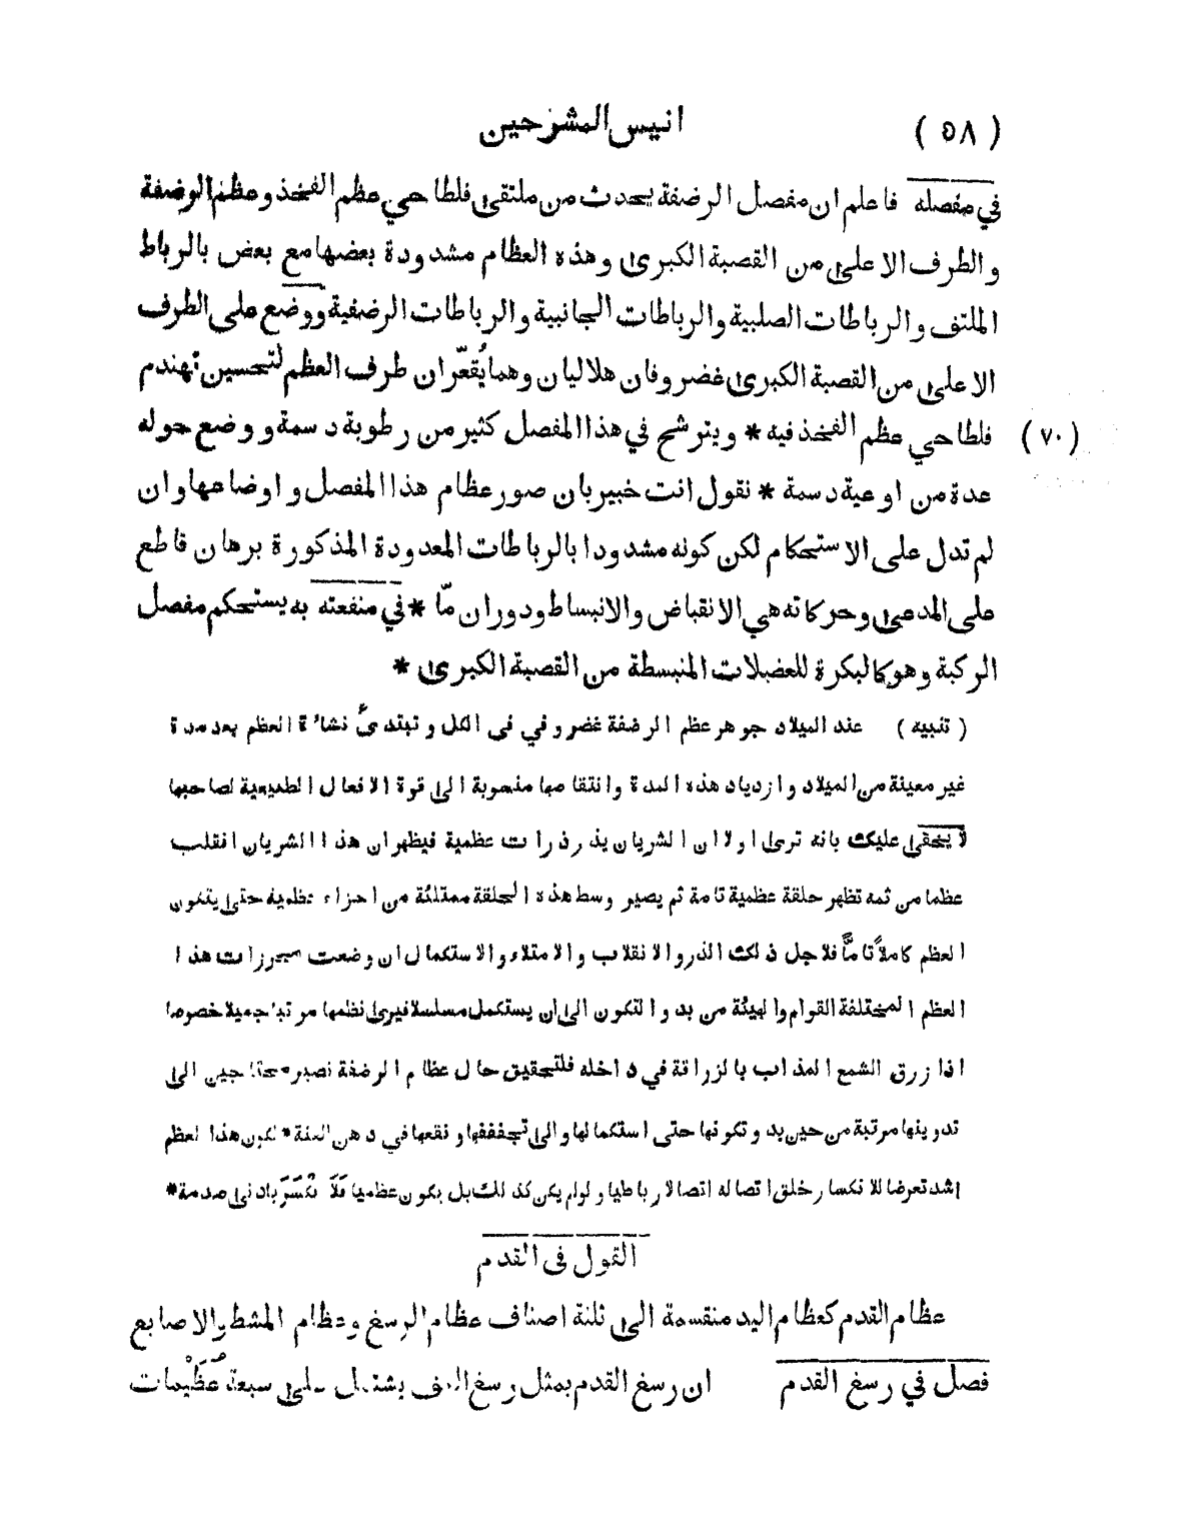 (٥٨) انيس المشرحين
في مفصله فاعلم ان مفصل الرضفة يحدث من ملتقى فلطاحي عظم الفخذ وعظم الرضفة
والطرف الاعلى من القصبة الكبرى وهذه العظام مشدودة بعضها مع بعض بالرباط
الملتف والرباطات الصلبية والرباطات الجانبية والرباطات الرضفية ووضع على الطرف
الاعلى من القصبة الكبرى غضروفان هلاليان وهما يُقعّران طرف العظم لتحسين تهندم
(٧٠) فلطاحي عظم الفخذ فيه * ويترشح في هذا المفصل كثير من رطوبة دسمة ووضع حوله
عدة من اوعية دسمة * نقول انت خبير بان صور عظام هذا المفصل و اوضاعها وان
لم تدل على الاستحكام لكن كونه مشدودا بالرباطات المعدودة المذكورة برهان قاطع
على المدعى وحركاته هي الانقباض والانبساط ودوران مّا * في منفعته به يستحكم مفصل
الركبة وهو كالبكرة للعضلات المنبسطة من القصبة الكبرى *
(تنبيه) عند الميلاد جوهر عظم الرضفة غضروفي في الكل وتبتدئ نشائة العظم بعد مدة
غير معينة من الميلاد وازدياد هذه المدة وانتقاصها منصوبة الى قوة الافعال الطبيعية لصاحبها
لا يخفى عليك بانه ترى اولا ان الشريان يذر ذرات عظمية فيظهر ان هذا الشريان انقلب
عظما من ثمه تظهر حلقة عظمية تامة ثم يصير وسط هذه الحلقة ممتلئة من اجزاء عظمية حتى يتكون
العظم كاملاً تامًّا فلاجل ذلك الذر والانقلاب والامتلاء والاستكمال ان وضعت مبرزات هذا
العظم المختلفة القوام والهيئة من بدو التكون الى ان يستكمل مسلسلا فيرى نظمها مرتبا جميلا خصوصا
اذا زرق الشمع المذاب بالزراقة في داخله فلتحقيق حال عظام الرضفة نصير محتاجين الى
تدوينها مرتبة من حين بدو تكونها حتى استكمالها والى تجفيفها ونقعها في دهن * لكون هذا العظم
اشد تعرضا للانكسار خلق اتصاله اتصالا رباطيا ولو لم يكن كذلك بل يكون عظميا فلا تكسّر بادنى صدمة *
القول في القدم
عظام القدم كعظام اليد منقسمة الى ثلثة اصناف عظام الرسغ وعظام المشط والاصابع
فصل في رسغ القدم ان رسغ القدم بمثل رسغ الكف يشتمل على سبعة عُظَيْمات